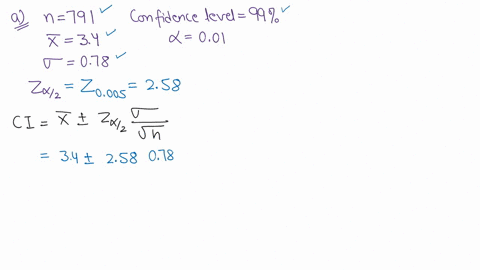 a) n=791 ✓ Confidence level=99% ✓
x̅=3.4 ✓ α=0.01
σ=0.78 ✓
Zα/2 = Z0.005 = 2.58
CI = x̅ ± Zα/2 σ/√n
= 3.4 ± 2.58 0.78